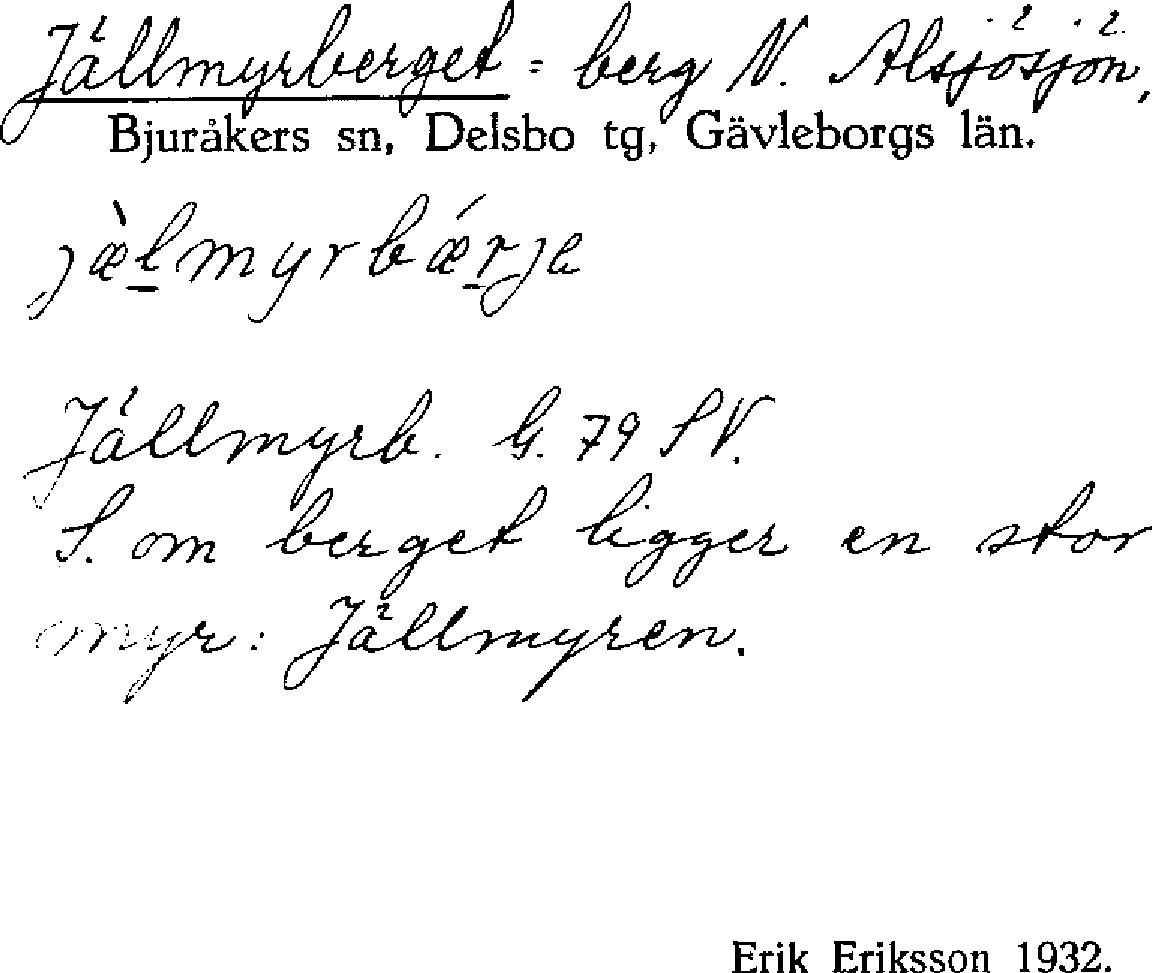 Jällmyrberget = berg N. Alsjösjön,
Bjuråkers sn, Delsbo tg, Gävleborgs län.
jæ̀l̲myrbǽr̲ja
Jällmyrb. G. 79 SV.
S. om berget ligger en stor
myr: Jällmyren.
Erik Eriksson 1932.